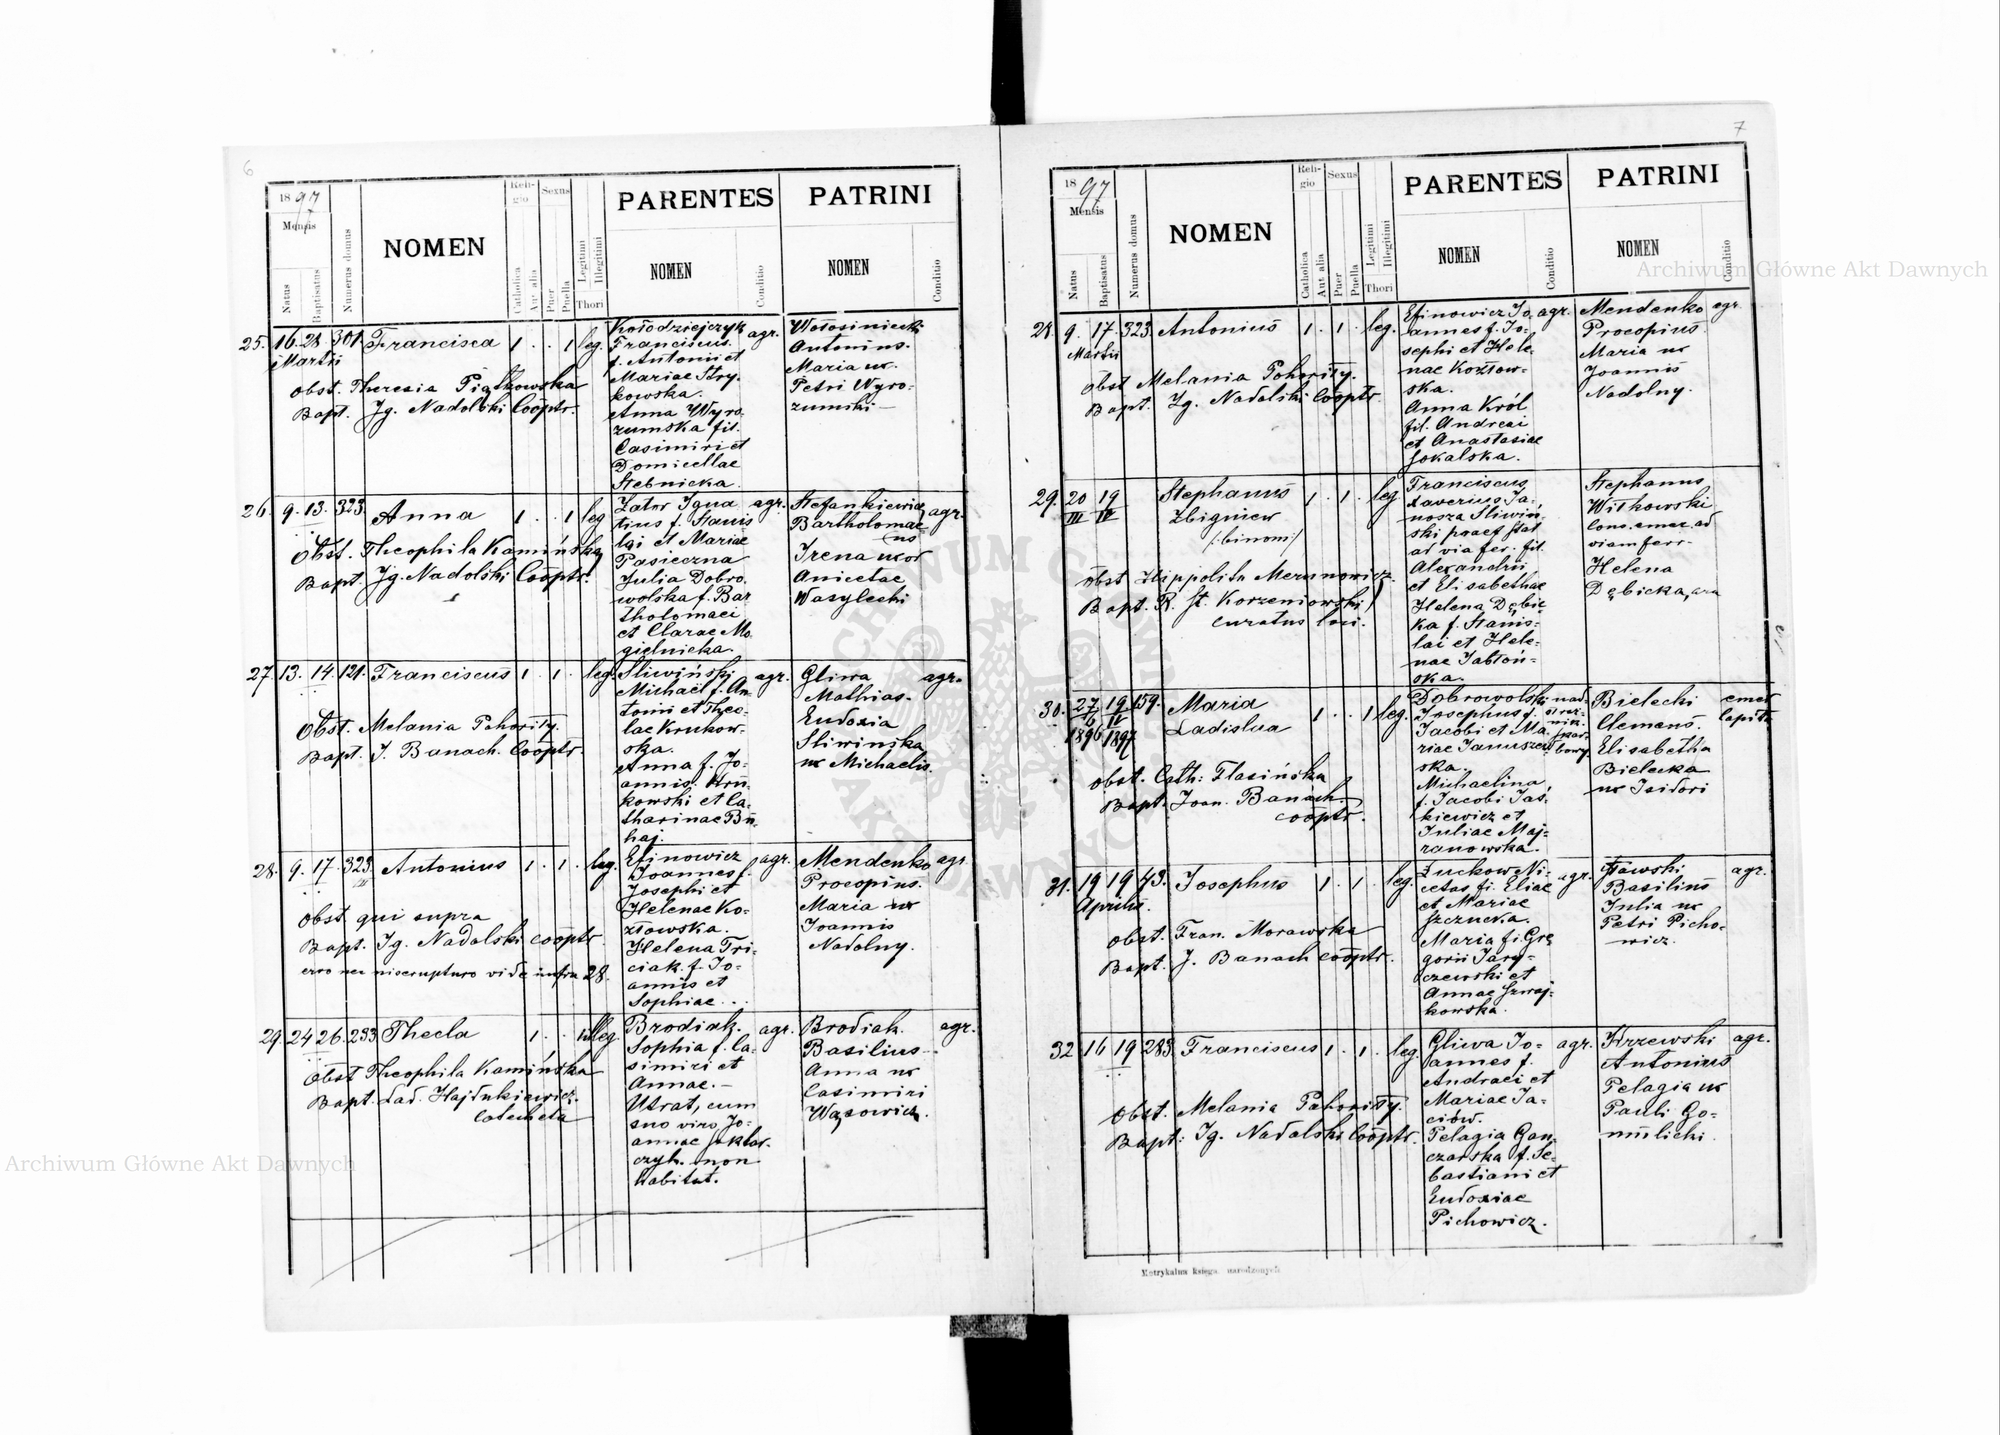 6
1897
Mensis
Natus
Baptisatus
Numerus domus
NOMEN
Religio
Catholica
Aut alia
Sexus
Puer
Puella
Legitimi
Illegitimi
Thori
PARENTES
NOMEN
Conditio
PATRINI
NOMEN
Conditio
25. 16. 28. 301. Francisca 1 . . 1 leg.
Martii
Obst. Theresia Piątkowska
Bapt. Ig. Nadolski Cooptr.
Kołodziejczyk agr.
Franciscus
f. Antonii et
Mariae Stry-
kowska.
Anna Wyro
zumska fil.
Casimiri et
Domicellae
Stebnicka.
Wołosiniecki
Antonius.
Maria ux.
Petri Wyro-
zumski
26. 9. 13. 323. Anna 1 . . 1 leg
Obst. Theophila Kamińska
Bapt. Ig. Nadolski Cooptr.
Zator Igna agr.
tius f. Stanis
lai et Mariae
Pasieczna
Julia Dobro.
wolska f. Bar
tholomaei
et Clarae Mo.
gielnicka.
Stefankiewicz agr.
Bartholomae
us
Irena uxor
Anicetae
Wasylecki
27. 13. 14. 121. Franciscus 1 . 1 . leg.
Obst. Melania Pohoriły.
Bapt. J. Banach. Cooptr.
Sliwiński agr.
Michael f. An
tonii et Theo-
lae Krukow-
ska.
Anna f. Jo-
annis Kru-
kowski et Ca-
tharinae Bu
haj.
Gliwa agr.
Mathias.
Eudoxia
Sliwińska
ux Michaelis.
28. 9. 17. 323 Antonius 1 . 1 . leg.
III
Obst. qui supra
Bapt. Ig. Nadolski cooptr.
vide infra 28.
Efinowicz agr.
Joannes f.
Josephi et
Helenae Ko-
złowska.
Helena Tri-
ciak. f. Jo-
annis et
Sophiae . .
Mendenko agr.
Procopius.
Maria ux
Joannis
Nadolny.
29. 24 26. 233 Thecla 1 . . 1 illeg.
Obst Theophila Kamińska
Bapt. Lad. Hajdukiewicz.
Catecheta
Brodiak. agr.
Sophia f. Ca-
simiri et
Annae. —
Usrat, cum
suo viro Jo-
annae
czyk. non
habitat.
Brodiak. agr.
Basilius
Anna ux
Casimiri
Wąsowicz.
7
1897
Mensis
Natus
Baptisatus
Numerus domus
NOMEN
Religio
Catholica
Aut alia
Sexus
Puer
Puella
Legitimi
Illegitimi
Thori
PARENTES
NOMEN
Conditio
PATRINI
NOMEN
Conditio
28. 9. 17. 323. Antonius 1 . 1 . leg.
Martii
Obst Melania Pohoriły.
Bapt. Ig. Nadolski Cooptr.
Efinowicz Jo. agr.
annes f. Jo-
sephi et Hele-
nae Kozłow-
ska.
Anna Król
fil. Andreai
et Anastasiae
Sokalska.
Mendenko agr.
Procopius
Maria ux
Joannis
Nadolny.
29. 20 19 Stephanus 1 . 1 . leg
III IV Zbigniew
/:binom:/
Obst Hippolita Merunowicz.
Bapt. R. St. Korzeniowski
curatus loci.
Franciscus
Xaverius Ja-
nosza Sliwiń-
ski praef stat
ad via fer. fil.
Alexandri
et Elisabethae
Helena Dębic
ka f. Stanis-
lai et Hele-
nae Jabłoń-
ska.
Stephanus
Witkowski
ad
viam ferr.
Helena
Dębicka,
30. 27 19 159. Maria 1 . . 1 leg.
6 IV Ladislaa
1896 1897
Obst. Cath: Flasińska
Bapt. Joan. Banach.
cooptr.
Dobrowolski nad.
Josephus f. straż-
Jacobi et Ma nik
riae Januszew skar-
ska. bowy.
Michaelina
f. Jacobi Jaś-
kiewicz et
Juliae Maj-
ranowska.
Bielecki emer
Clemens. Capit.
Elisabetha
Bielecka
ux Isidori
31. 19 19 43. Josephus 1 . 1 . leg.
Aprilis.
Obst. Fran. Morawska
Bapt. J. Banach cooptr.
Zuckow Ni- agr.
cetas fi. Eliae
et Mariae
Szczucka.
Maria fi Gre
gorii Jary-
czewski et
Annae Szwaj-
kowska.
Basilius agr.
Julia ux
Petri Picho-
wicz.
32. 16 19 283. Franciscus 1 . 1 . leg.
Obst. Melania Pohoriły.
Bapt: Ig. Nadolski Cooptr.
Gliwa Jo- agr.
annes f.
Andraei et
Mariae Ja-
ciów.
Pelagia Gon-
czarska f. Se-
bastiani et
Eudoxiae
Pichowicz.
Krzewski agr.
Antonius
Pelagia ux
Pauli Go-
mulicki.
Metrykalna księga narodzonych
Archiwum Główne Akt Dawnych
Archiwum Główne Akt Dawnych
ARCHIWUM GŁÓWNE AKT DAWNYCH